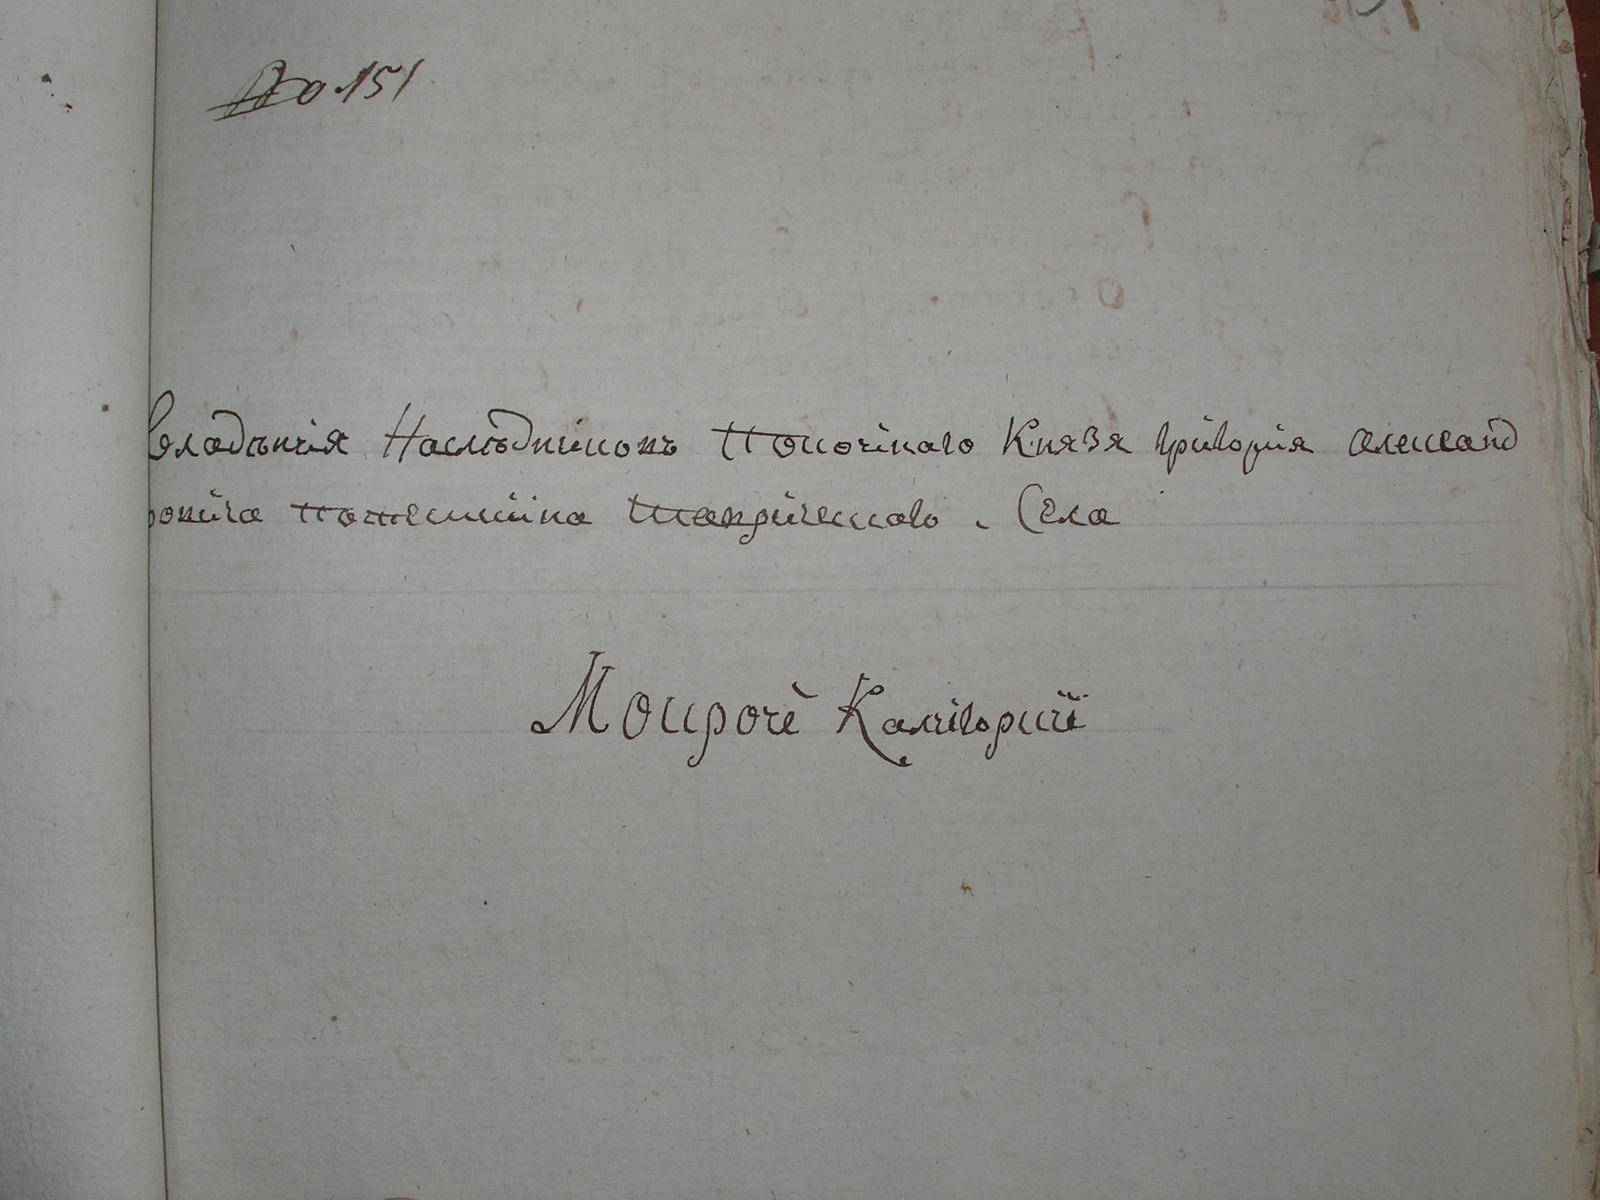 No 151
Владѣнія Наслѣдников Покоинаго Князя Григория Александ
ровича Потемкина Таврическаго. Села
Мокрой Калигорки